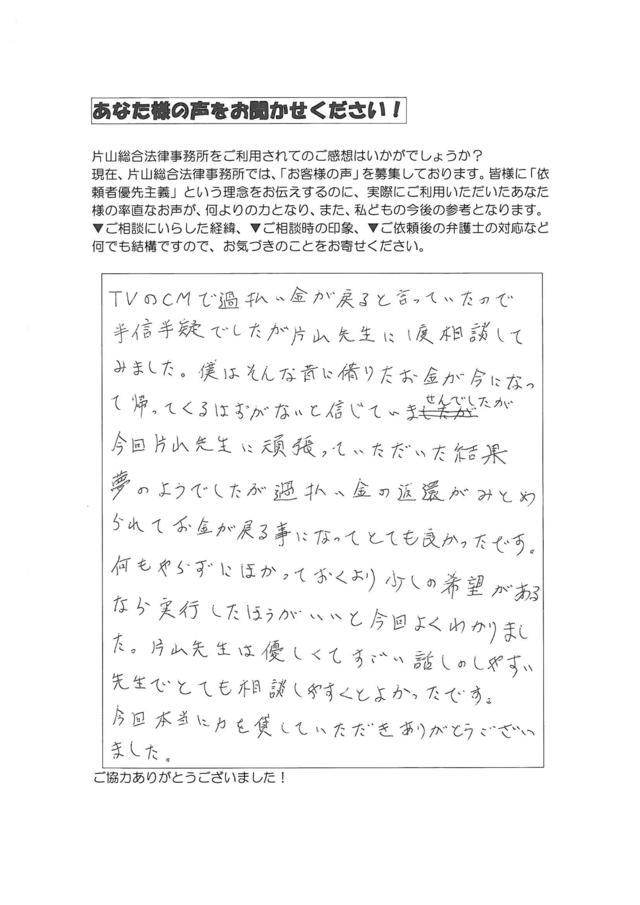 あなた様の声をお聞かせください！
片山総合法律事務所をご利用されてのご感想はいかがでしょうか？
現在、片山総合法律事務所では、「お客様の声」を募集しております。皆様に「依
頼者優先主義」という理念をお伝えするのに、実際にご利用いただいたあなた
様の率直なお声が、何よりの力となり、また、私どもの今後の参考となります。
▼ご相談にいらした経緯、▼ご相談時の印象、▼ご依頼後の弁護士の対応など
何でも結構ですので、お気づきのことをお寄せください。
TVのCMで過払い金が戻ると言っていたので
半信半疑でしたが片山先生に1度相談して
みました。僕はそんな昔に借りたお金が今になっ
て帰ってくるはずがないと信じていませんでしたが
今回片山先生に頑張っていただいた結果
夢のようでしたが過払い金の返還がみとめ
られてお金が戻る事になってとても良かったです。
何もやらずにほかっておくより少しの希望がある
なら実行したほうがいいと今回よくわかりまし
た。片山先生は優しくてすごい話しのしやすい
先生でとても相談しやすくとよかったです。
今回本当に力を貸していただきありがとうござい
ました。
ご協力ありがとうございました！